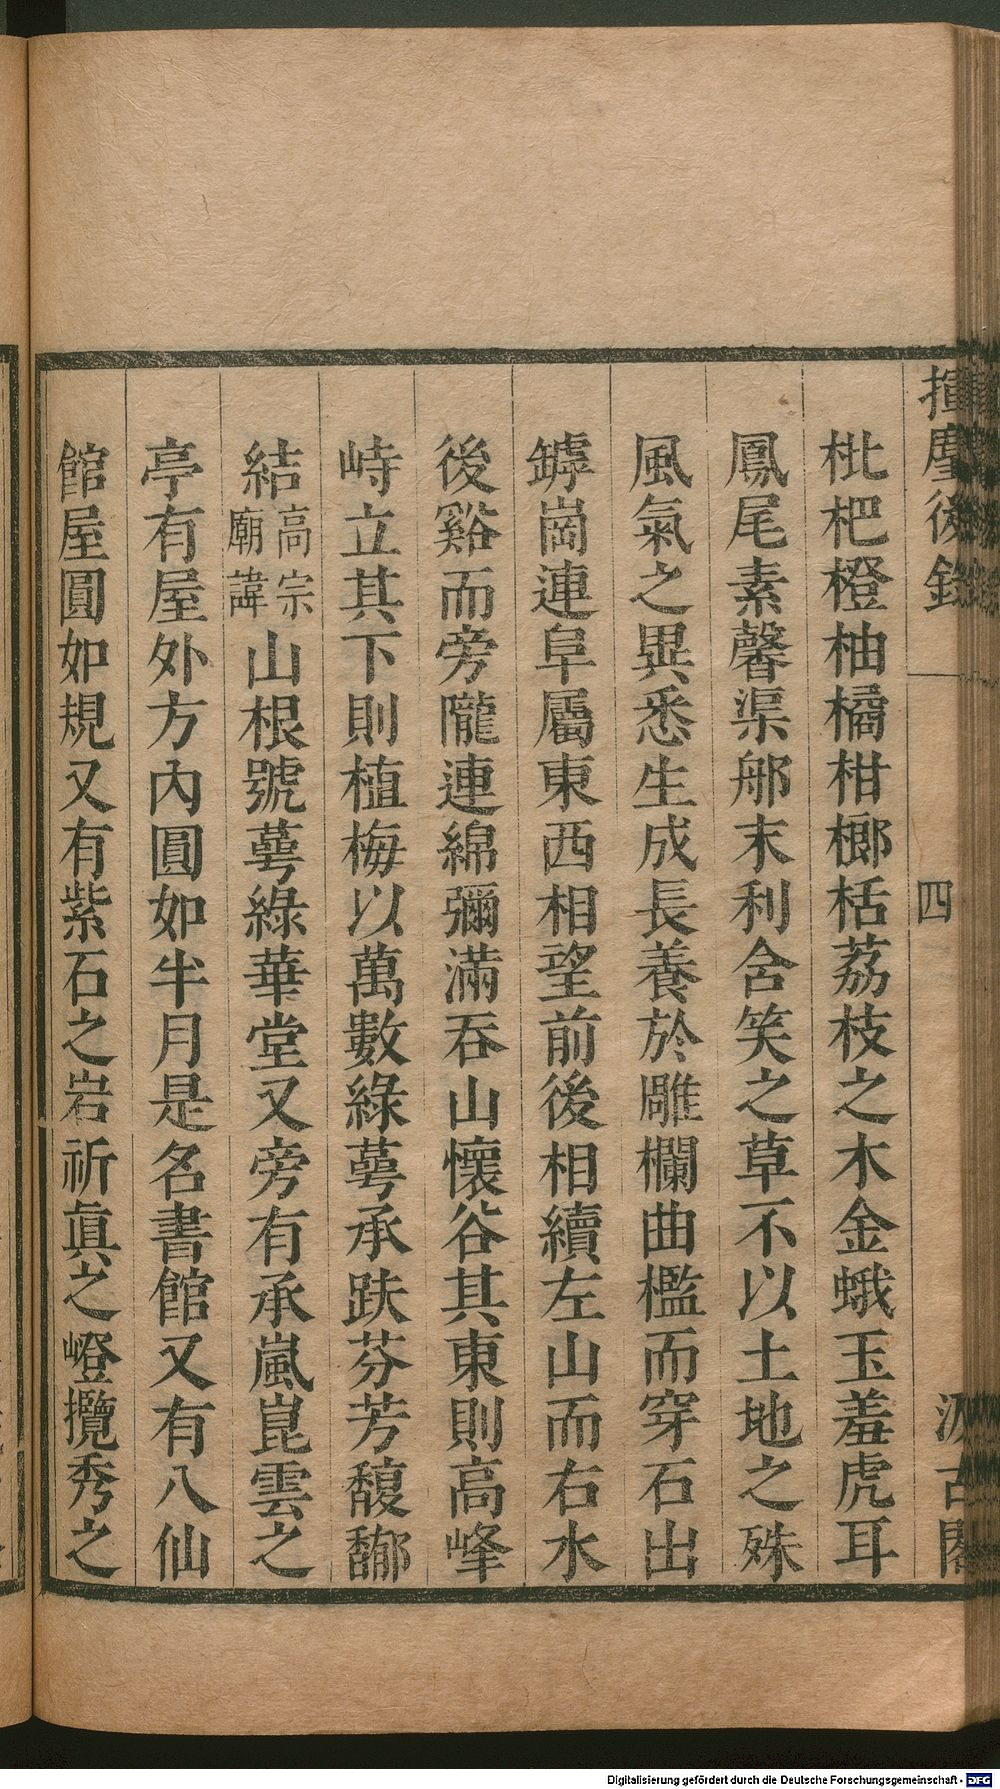 揮麈後錄
四
汲古閣
枇杷橙柚橘柑榔栝荔枝之木金蛾玉羞虎耳
鳳尾素馨渠𨙻末利含笑之草不以土地之殊
風氣之異悉生成長養於雕欄曲檻而穿石出
罅崗連阜屬東西相望前後相續左山而右水
後谿而旁隴連綿彌滿吞山懷谷其東則高峰
峙立其下則植梅以萬數綠萼承趺芬芳馥郁
結高宗廟諱山根號萼綠華堂又旁有承嵐崑雲之
亭有屋外方內圓如半月是名書館又有八仙
館屋圓如規又有紫石之岩祈眞之嶝攬秀之
Digitalisierung gefördert durch die Deutsche Forschungsgemeinschaft - DFG